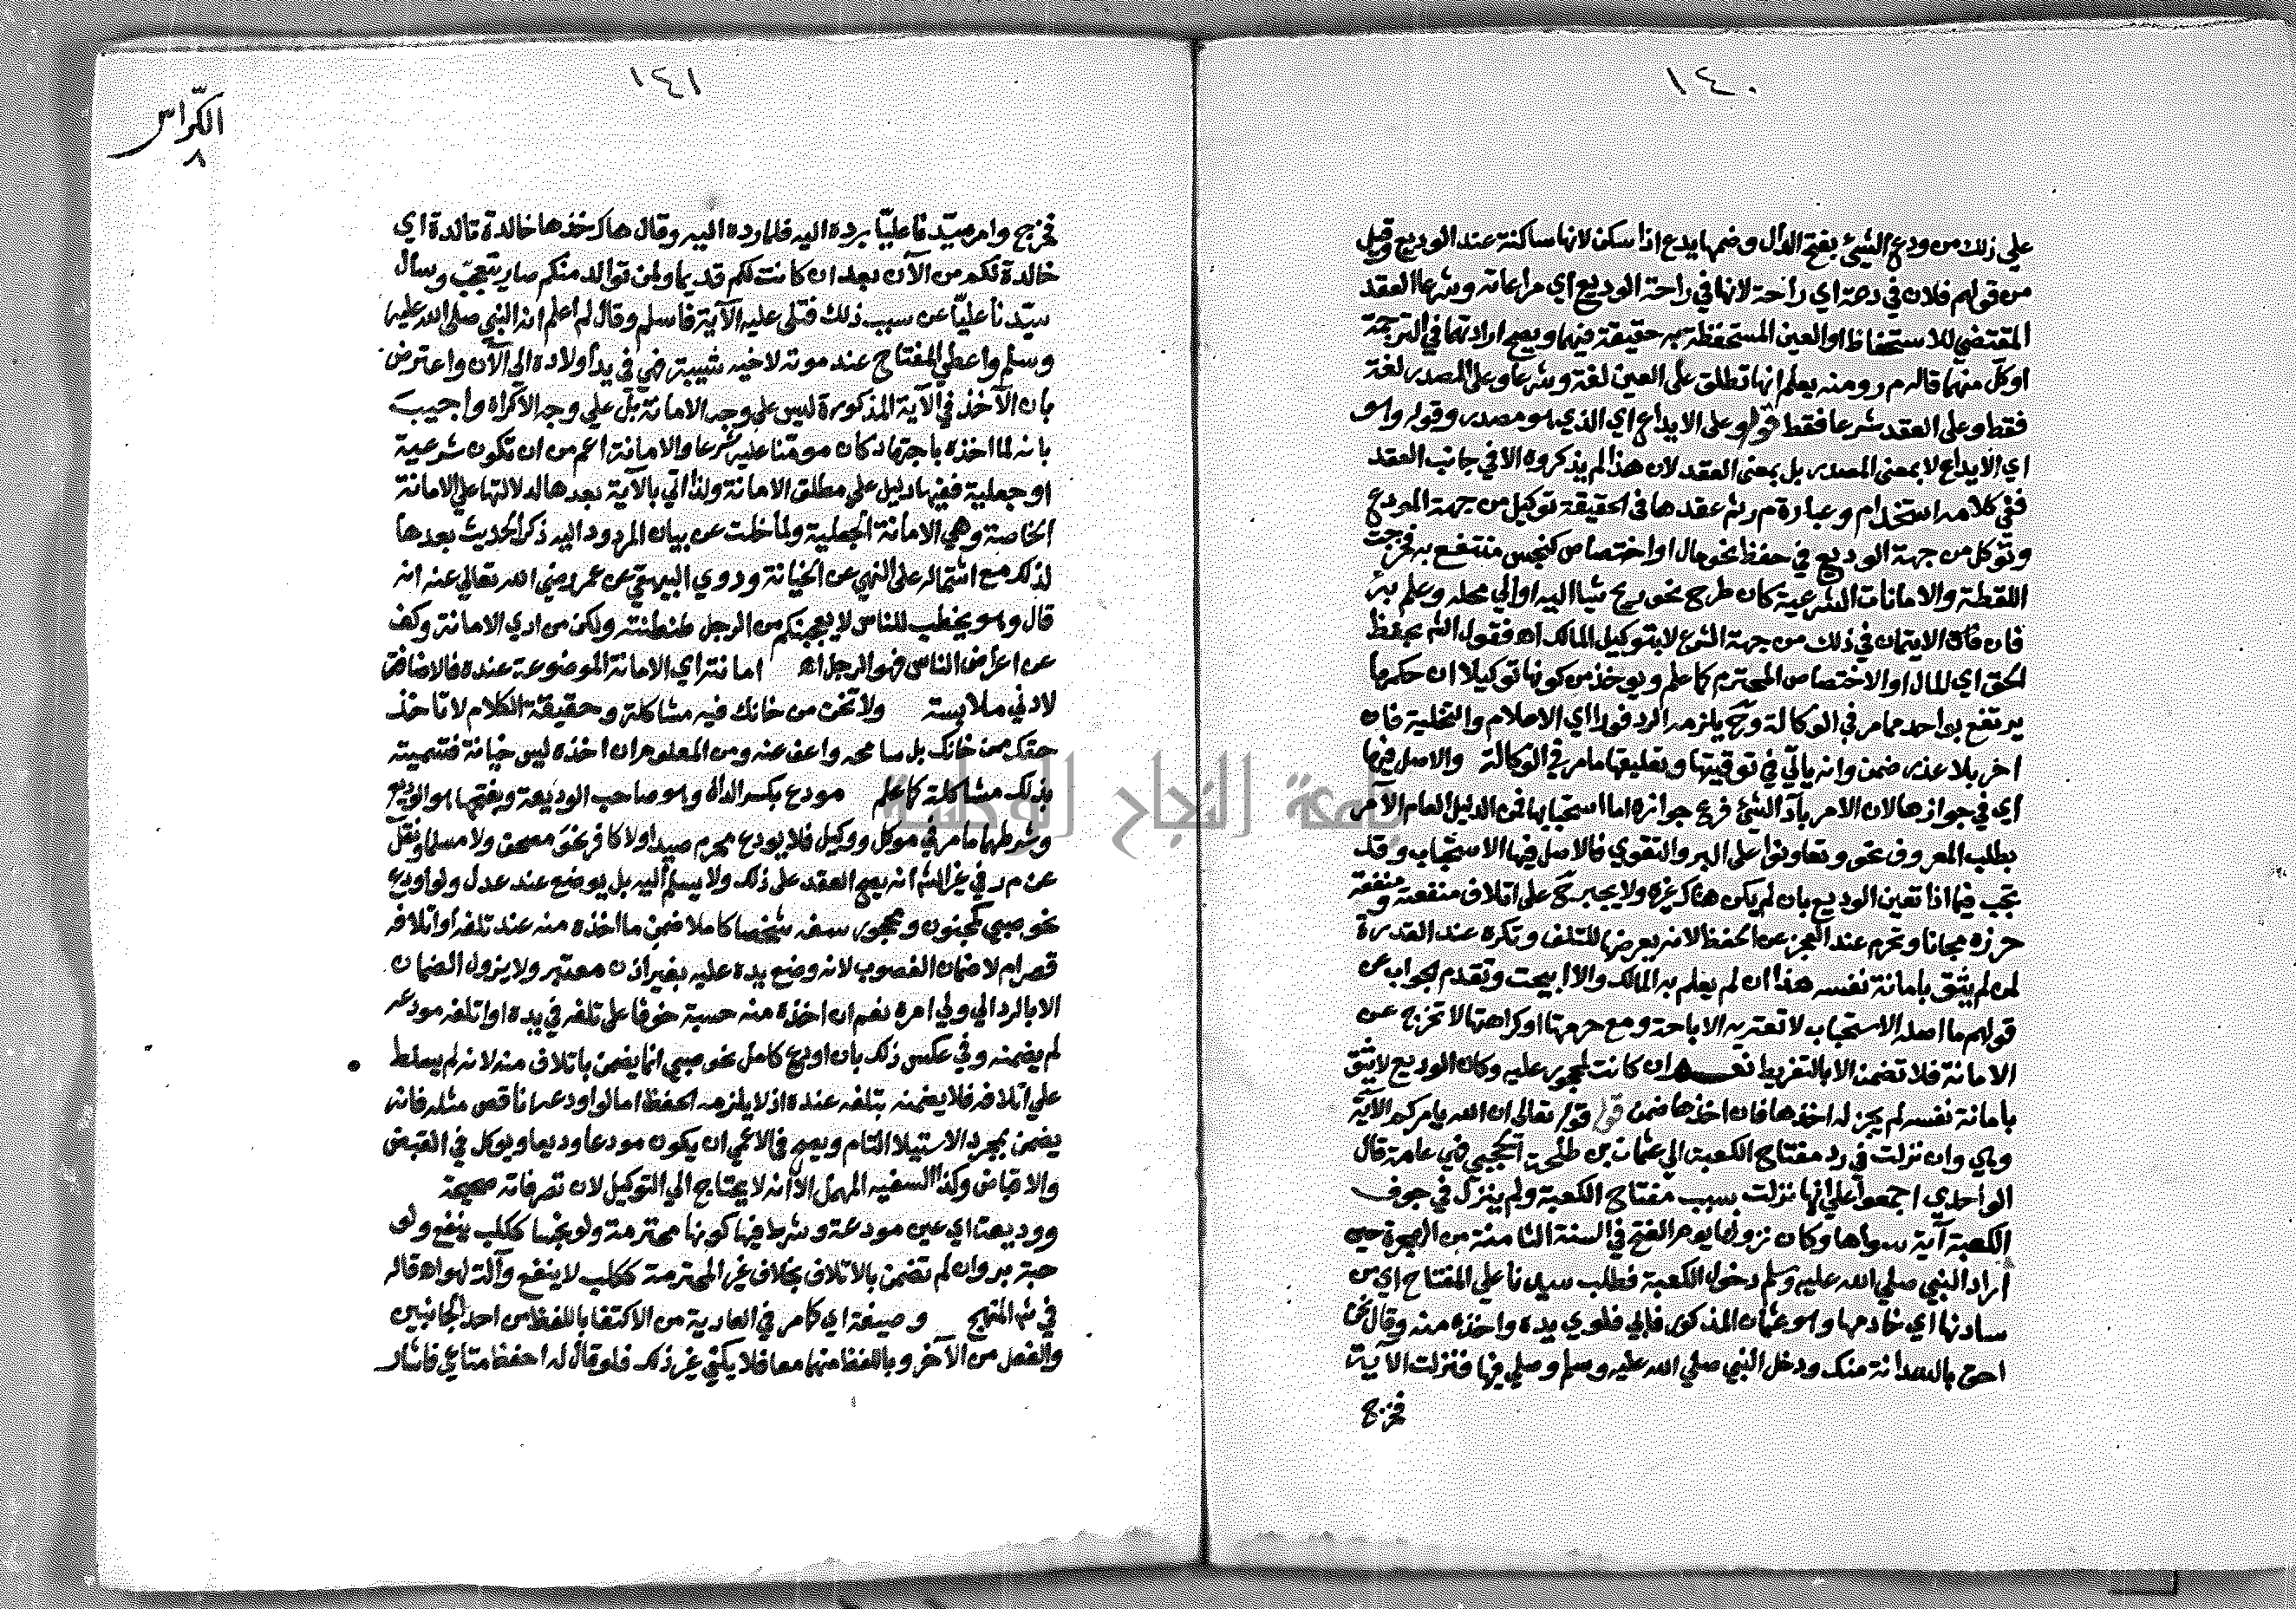 ١٤٠
علي ذلك من ودع الشيئ بفتح الدال وضمها يدع اذا سكن لانها ساكنة عند الوديع وقيل
من قولهم فلان في دعة اي راحة لانها في راحة الوديع اي مراعاته وشرعا العقد
المقتضي للاستحفاظ او العين المستحفظة به حقيقة فيهما ويصح ارادتهما في الترجمة
او كل منهما قاله م ر ومنه يعلم انها تطلق على العين لغة وشرعا وعلى المصدر لغة
فقط وعلى العقد شرعا فقط قوله وعلى الايداع اي الذي هو مصدر وقوله وهو
اي الايداع لا بمعنى المصدر بل بمعنى العقد لان هذا لم يذكروه الا في جانب العقد
ففي كلامه استخدام وعبارة م ر ثم عقدها في الحقيقة توكيل من جهة المودع
وتوكل من جهة الوديع في حفظ نحو مال او اختصاص كنجس منتفع به فخرجت
اللقطة والامانات الشرعية كان طرح نحو ريح شيا اليه او الي محله وعلم به
فان الايتمان في ذلك من جهة الشرع لا بتوكيل المالك اه فقول الشم بحفظ
الحق اي للمال او الاختصاص المحترم كما علم ويوخذ من كونها توكيلا ان حكمها
يرتفع بواحد مما مر في الوكالة وح يلزمه الرد فورا اي الاعلام والتخلية فان
اخر بلا عذر ضمن وانه ياتي في توقيتها وتعليقها ما مر في الوكالة والاصل فيها
اي في جوازها لان الامر باد الشيئ فرع جوازه اما استحبابها فمن الدليل العام الآمر
بطلب المعروف نحو وتعاونوا على البر والتقوي فالاصل فيها الاستحباب وقد
تجب فيما اذا تعين الوديع بان لم يكن هناك غيره ولا يجبر ح على اتلاف منفعته ومنفعة
حرزه مجانا وتحرم عند العجز عن الحفظ لانه يعرضها للتلف وتكره عند القدرة
لمن لم يثق بامانة نفسه هذا ان لم يعلم به المالك والا ابيحت وتقدم الجواب عن
قولهم ما اصله الاستحباب لا تعتريه الاباحة ومع حرمتها او كراهتها لا تخرج عن
الامانة فلا تضمن الا بالتفريط نعم ان كانت لمحجور عليه وكان الوديع لا يثق
بامانة نفسه لم يجز له اخذها فان اخذها ضمن قوله تعالى ان الله يامركم الآية
وهي وان نزلت في رد مفتاح الكعبة الي عثمان بن طلحة الحجبي فهي عامة قال
الواحدي اجمعوا على انها نزلت بسبب مفتاح الكعبة ولم ينزل في جوف
الكعبة آية سواها وكان نزولها يوم الفتح في السنة الثامنة من الهجرة حين
اراد النبي صلي الله عليه وسلم دخول الكعبة فطلب سيدنا علي المفتاح اي من
سادنها اي خادمها وهو عثمان المذكور فابي فلوي يده واخذه منه وقال نحن
احق بالسدانة منك ودخل النبي صلي الله عليه وسلم وصلي فيها فنزلت الآية
فخرج
١٤١
الكراس
٨
فخرج وامر سيدنا عليا برده اليه فلما رده اليه وقال هاك خذها خالدة تالدة اي
خالدة لكم من الآن بعد ان كانت لكم قديما ولمن توالد منكم صار يتعجب وسال
سيدنا عليا عن سبب ذلك فتلى عليه الآية فاسلم وقال لم اعلم انه النبي صلى الله عليه
وسلم واعطي المفتاح عند موته لاخيه شيبة فهي في يد اولاده الى الآن واعترض
بان الآخذ في الآية المذكورة ليس على وجه الامانة بل علي وجه الاكراه واجيب
بانه لما اخذه باجتهاد كان موتمنا عليه شرعا والامانة اعم من ان تكون شرعية
او جعلية ففيها دليل على مطلق الامانة ولذا اتي بالآية بعدها لدلالتها على الامانة
الخاصة وهي الامانة الجعلية ولما خلت عن بيان المردود اليه ذكر الحديث بعدها
لذلك مع اشتماله على النهي عن الخيانة وروي البيهقي عن عمر رضي الله تعالي عنه انه
قال وهو يخطب للناس لا يعجبنكم من الرجل طنطنته ولكن من ادي الامانة وكف
عن اعراض الناس فهو الرجل اه امانته اي الامانة الموضوعة عنده فالاضافة
لادني ملابسة ولا تخن من خانك فيه مشاكلة وحقيقة الكلام لا تاخذ
حقك ممن خانك بل سامحه واعف عنه ومن المعلوم ان اخذه ليس خيانة فتسميته
بذلك مشاكلة كما علم مودع بكسر الدال وهو صاحب الوديعة وبفتحها هو الوديع
وشرطهما ما مر في موكل ووكيل فلا يودع محرم صيدا ولا كافر نحو مصحف ولا مسلما ونقل
عن م ر في غير الشم انه يصح العقد على ذلك ولا يسلم اليه بل يوضع عند عدل ولو اودع
نحو صبي كمجنون ومحجور سفه شخصا كاملا ضمن ما اخذه منه عند تلفه او اتلافه
قصرام لا ضمان الغصوب لانه وضع يده عليه بغير اذن معتبر ولا يزول الضمان
الا بالرد الي ولي امره نعم ان اخذه منه حسبة خوفا على تلفه في يده او اتلفه مودعه
لم يضمنه وفي عكس ذلك بان اودع كامل نحو صبي انما يضمن باتلاف منه لانه لم يسلط
علي اتلافه فلا يضمنه بتلفه عنده اذ لا يلزمه الحفظ اما لو اودعه ناقص مثله فانه
يضمن بمجرد الاستيلا التام ويصح في الاعمي ان يكون مودعا وديعا ويوكل في القبض
والاقباض وكذا السفيه المهمل الا انه لا يحتاج الي التوكيل لان تصرفاته صحيحة
ووديعة اي عين مودعة وشرط فيها كونها محترمة ولو نجسا ككلب ينفع ولو
حبة بر وان لم تضمن بالاتلاف بخلاف غير المحترمة ككلب لا ينفع وآلة لهو اه قاله
في شم المنهج وصيغة اي كامر في العارية من الاكتفا باللفظ من احد الجانبين
والفعل من الآخر وباللفظ منهما معا فلا يكفي غير ذلك فلو قال له احفظ متاعي فاشار